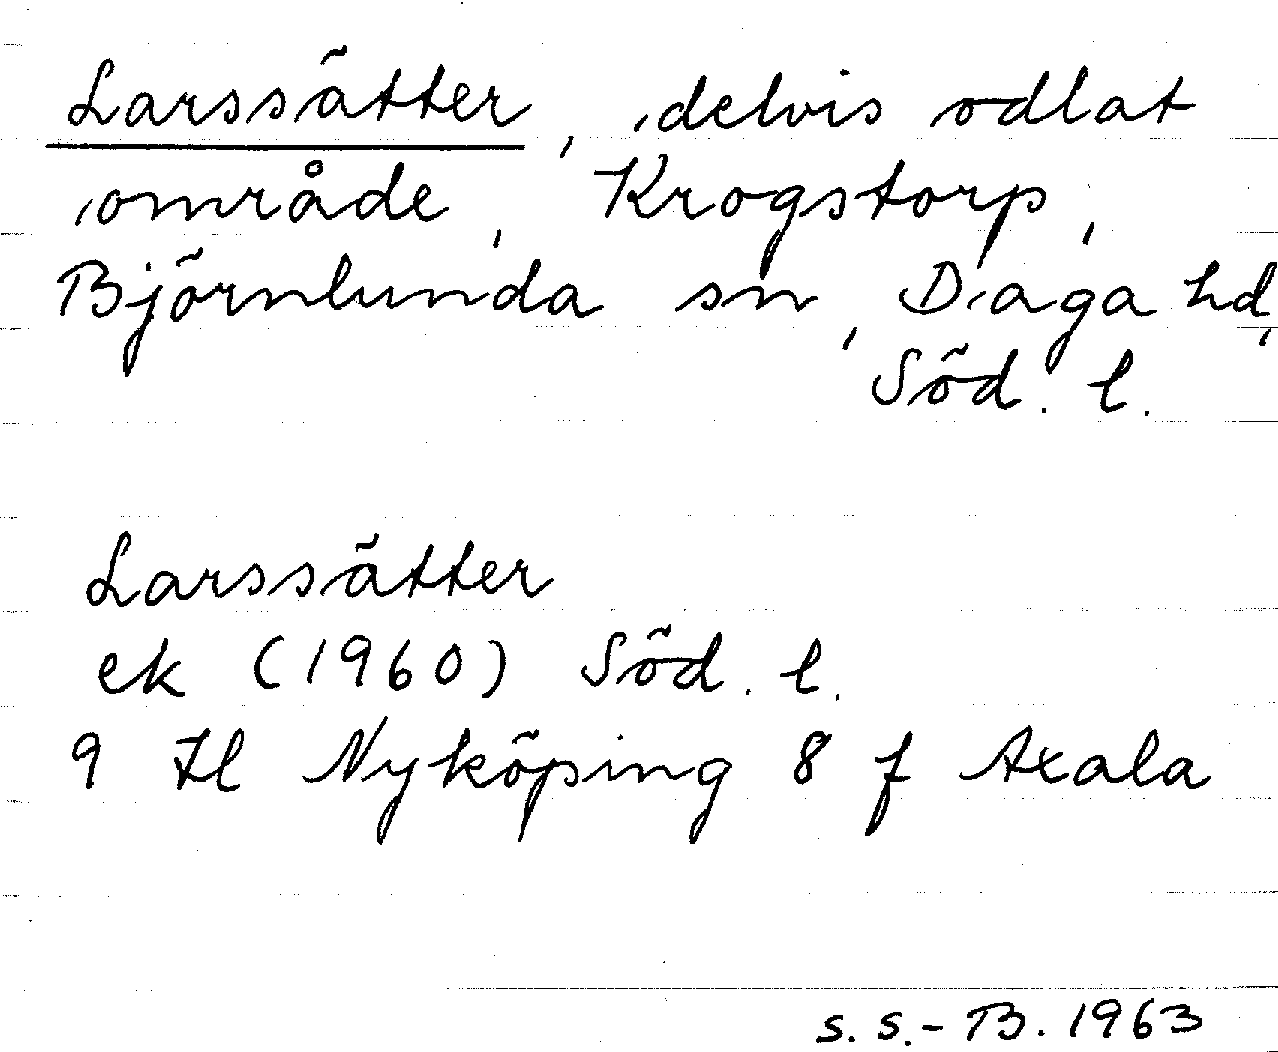 Larssätter, delvis odlat
område, Krogstorp,
Björnlunda sn, Daga hd,
Söd. l.
Larssätter
ek (1960) Söd. l.
9 H Nyköping 8 f Axala
S. S.-B. 1963